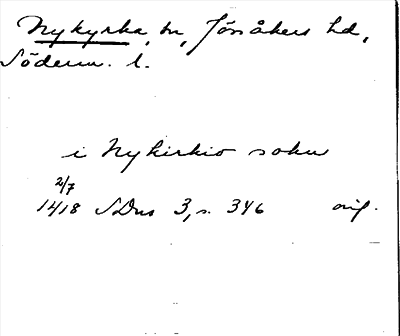 Nykyrka, sn, Jönåkers hd,
Söderm. l.
i Nykirkio sokn
2/7
1418 SDns 3, s. 346 orig.